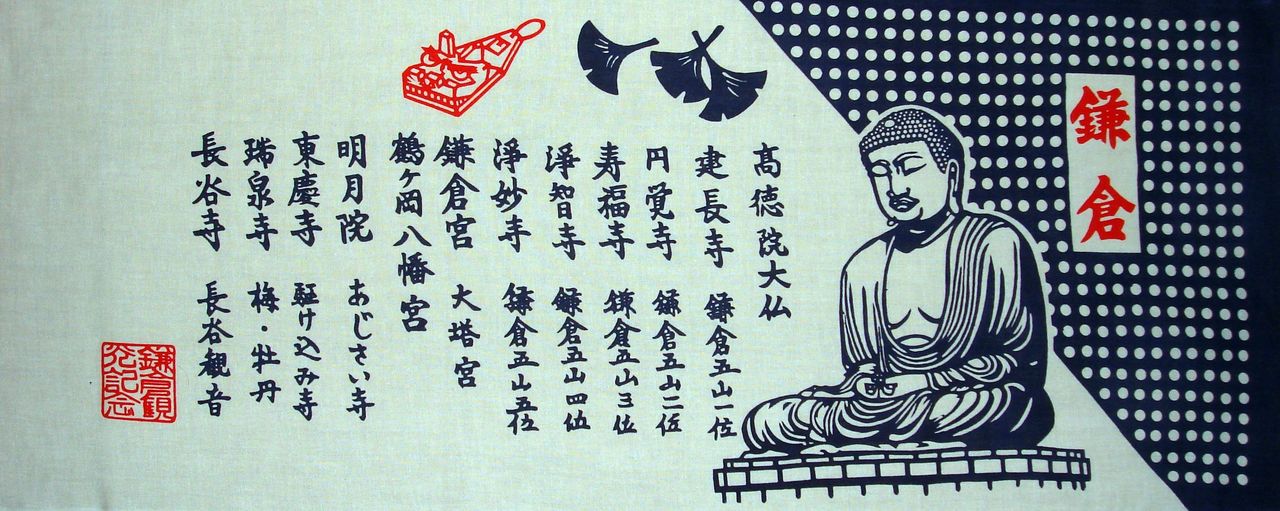 鎌倉
高徳院大仏
建長寺 鎌倉五山一位
円覚寺 鎌倉五山二位
寿福寺 鎌倉五山3位
淨智寺 鎌倉五山四位
淨妙寺 鎌倉五山五位
鎌倉宮 大塔宮
鶴ヶ岡八幡宮
明月院 あじさい寺
東慶寺 駆け込み寺
瑞泉寺 梅・牡丹
長谷寺 長谷観音
鎌倉観光記念